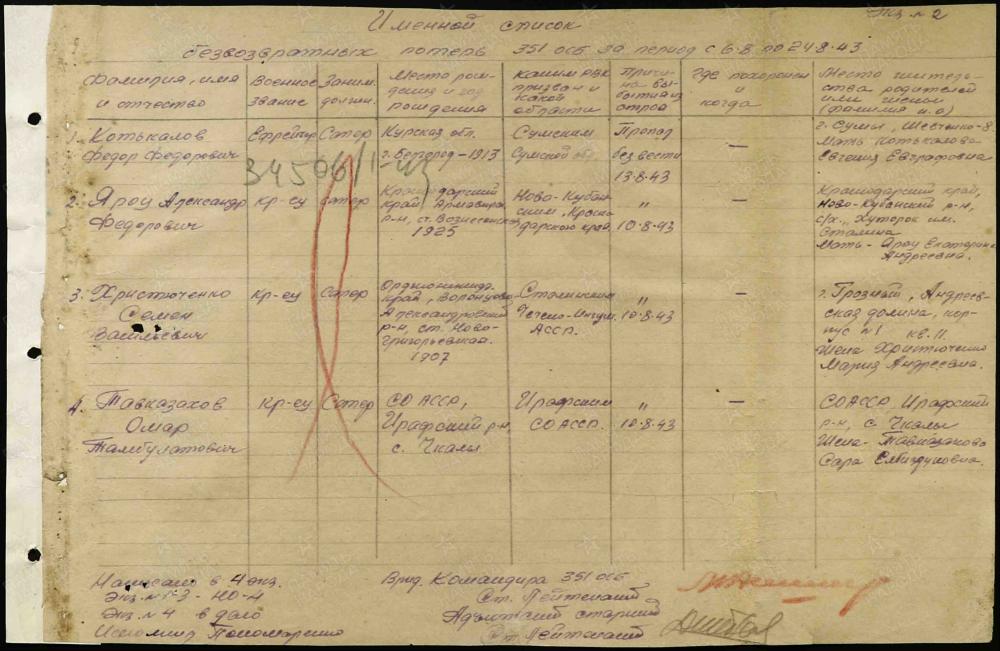 Экз. № 2
Именной список
безвозвратных потерь 351 осб за период с 6.8 по 24.8.43
Фамилия, имя и отчество
Военное звание
Заним. должн.
Место рождения и год рождения
Каким РВК призван и какой области
Причина выбытия из строя
Где похоронен и когда
Место жительства родителей или жены (фамилия и.о)
34506/1-43
1. Котькалов
Федор Федорович
Ефрейтор
Сапер
Курская обл.
г. Белгород - 1913
Сумским
Сумской обл.
Пропал
без вести
13.8.43
—
г. Сумы, 8.
Мать Котькалова
Евгения Евграфовна
2. Яроц Александр
Федорович
Кр-ец
Сапер
Краснодарский
край, Армавирск.
р-н, ст. Вознесенская
1925
Ново-Кубан
ским, Красно
дарского края
"
10.8.43
—
Краснодарский край,
Ново-Кубанский р-н,
с/х., Хуторок им.
Сталина
Мать - Яроц Екатерина
Андреевна.
3. Христюченко
Семен
Васильевич
Кр-ец
Сапер
Орджоникидз.
край, Воронцово-
Александровский
р-н, ст. Ново-
григорьевская.
1907
Сталинским
Чечено-Ингуш.
АССР.
"
10.8.43
—
г. Грозный, Андреев-
ская долина, кор-
пус №1 кв. 11.
Жена Христюченко
Мария Андреевна.
4. Тавказахов
Омар
Тамбулатович
Кр-ец
Сапер
СО АССР,
Ирафский р-н,
с. Чкалы
Ирафским
СО АССР.
"
10.8.43
—
СО АССР, Ирафский
р-н, с. Чкалы
Жена - Тавказахова
Сара
Написано в 4 экз.
Экз. № 1-3 - НО-4
Экз. № 4 в дело
Исполнил Пономаренко
Врид. Командира 351 осб
Ст. Лейтенант
Адъютант старший
Ст. Лейтенант